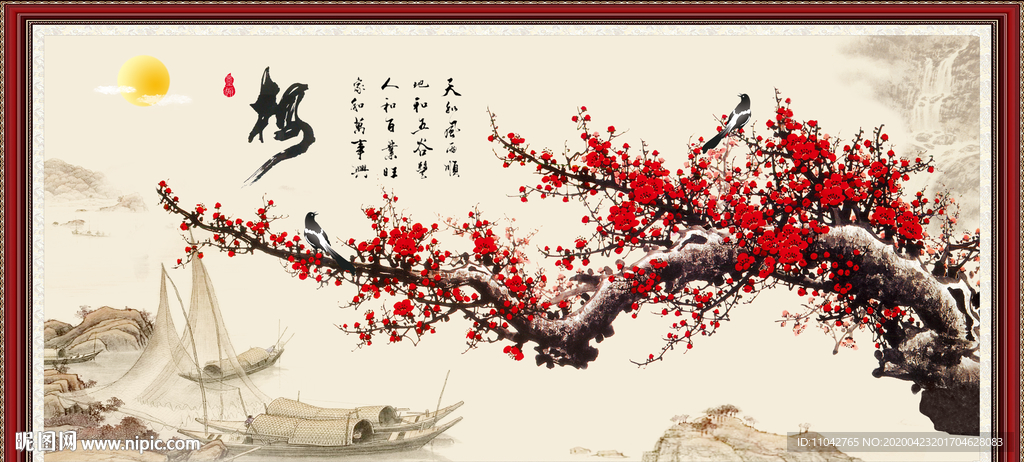 和
天和風雨順
地和五谷豐
人和百業旺
家和萬事興
昵图网 www.nipic.com
ID:11042765 NO:20200423201704628083